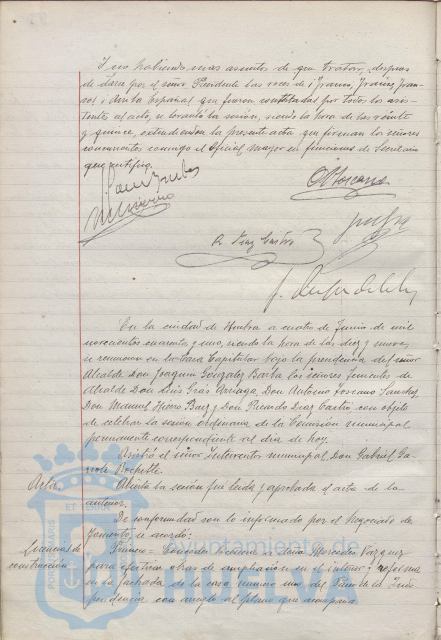 Y no habiendo mas asuntos de que tratar, despues
de darse por el señor Presidente las voces de ¡Franco, Franco, Fran-
co! y Arriba España! que fueron contestadas por todos los asis-
tentes al acto, se levantó la sesión, siendo la hora de las veinte
y quince, extendiendose la presente acta que firman los señores
concurrentes conmigo el Oficial mayor en funciones de Secretario
que certifico.
O Toscano
R. Diaz Castro
En la ciudad de Huelva a cuatro de Junio de mil
novecientos cuarenta y uno, siendo la hora de las diez y nueve,
se reunieron en la Casa Capitular bajo la presidencia del señor
Alcalde Don Joaquin Gonzalez Barba los señores Tenientes de
Alcalde Don Luis Arriaga, Don Antonio Toscano Sanchez,
Don Manuel Baez y Don Ricardo Diaz Castro con objeto
de celebrar la sesión ordinaria de la Comisión municipal
permanente correspondiente al dia de hoy.
Asistió el señor Interventor municipal Don Gabriel
Acta. Abierta la sesión fué leida y aprobada el acta de la
anterior.
De conformidad con lo informado por el Negociado de
Fomento, se acordó:
Licencias de construcción. Primero = Conceder licencia a Doña Mercedes Vazquez
para efectuar obras de ampliación en el interior y reforma
en la fachada de la casa numero uno del Paseo de la Inde-
pendencia con arreglo al plano que acompaña
Ayuntamiento de
HUELVA